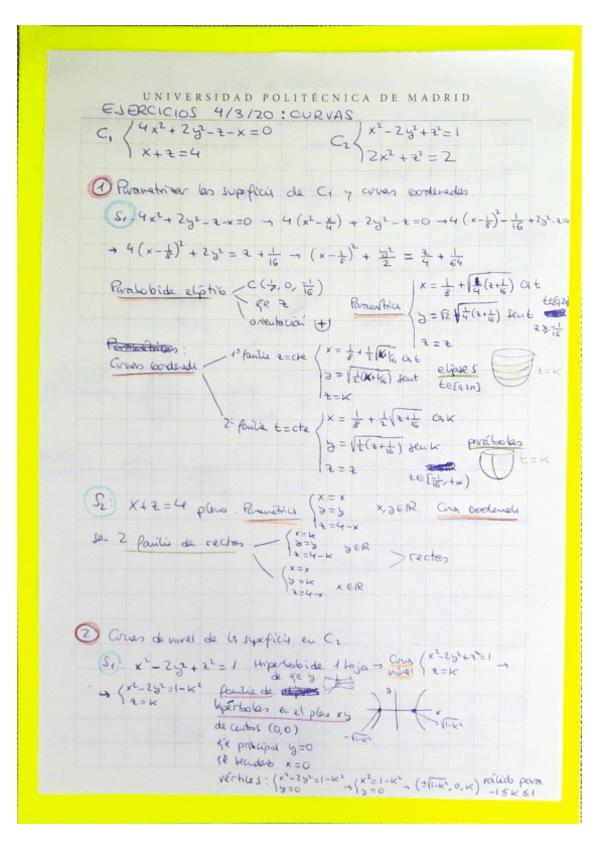 UNIVERSIDAD POLITÉCNICA DE MADRID
EJERCICIOS 4/3/20: CURVAS
C₁ { 4x²+2y²-z-x=0
x+z=4
C₂ { x²-2y²+z²=1
2x²+z²=2
① Parametrizar las superficies de C₁ y curvas coordenadas.
S₁: 4x²+2y²-z-x=0 → 4(x²-x/4)+2y²-z=0 → 4(x-1/8)²-1/16+2y²-z=0
→ 4(x-1/8)²+2y²=z+1/16 → (x-1/8)²+y²/2=z/4+1/64
Paraboloide elíptico
C(1/8, 0, -1/16)
eje z
orientación (+)
Paramétrica { x=1/8+√(1/4(z+1/16)) cos t
y=√2 √(1/4(z+1/16)) sen t
z=z
t∈[0,2π]
z≥-1/16
Curvas coordenadas
1ª familia z=cte { x=1/8+1/2√(K+1/16) cos t
y=√(1/2(K+1/16)) sen t
z=K
elipses
t∈[0,2π]
z=K
2ª familia t=cte { x=1/8+1/2√(z+1/16) cos K
y=√(1/2(z+1/16)) sen K
z=z
parábolas
t=K
z∈[-1/16,+∞)
S₂: x+z=4 plano. Paramétrica { x=x
y=y
z=4-x
x,y∈ℝ. Curvas coordenadas
son 2 familias de rectas
{ x=K
y=y
z=4-K
y∈ℝ
{ x=x
y=K
z=4-x
x∈ℝ
rectas
② Curvas de nivel de las superficies en C₂.
S₁: x²-2y²+z²=1 Hiperboloide 1 hoja → Curvas nivel { x²-2y²+z²=1
z=K →
de eje y
→ { x²-2y²=1-K²
z=K
familia de
hipérbolas en el plano xy
de centros (0,0)
eje principal y=0
eje secundario x=0
y
x
-√1-K²
√1-K²
vértices: { x²-2y²=1-K²
y=0 → { x²=1-K²
y=0 → (±√1-K², 0, K) válido para
-1≤K≤1